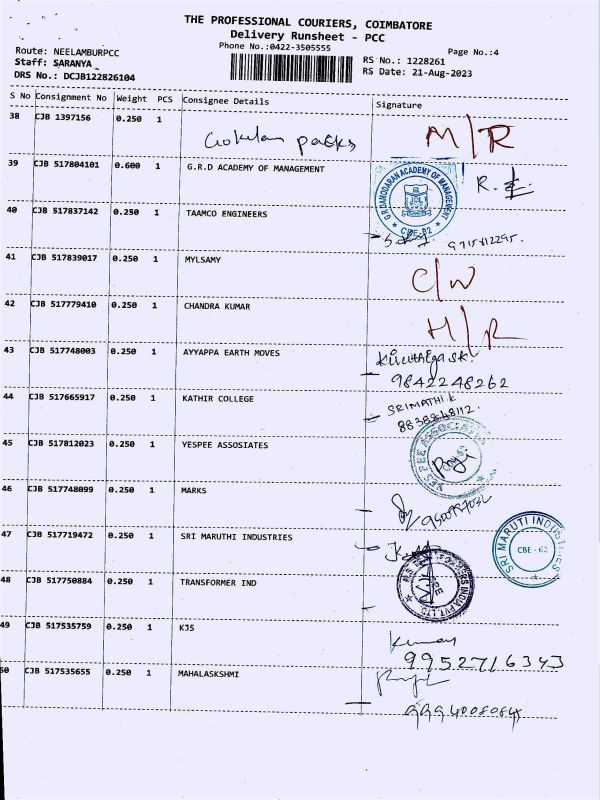 THE PROFESSIONAL COURIERS, COIMBATORE
Delivery Runsheet - PCC
Phone No.:0422-3505555
Page No.:4
Route: NEELAMBURPCC
Staff: SARANYA
DRS No.: DCJB122826104
RS No.: 1228261
RS Date: 21-Aug-2023
S No Consignment No Weight PCS Consignee Details Signature
38 CJB 1397156 0.250 1 Gokulam packs M/R
39 CJB 517804101 0.600 1 G.R.D ACADEMY OF MANAGEMENT
G.R.DAMODARAN ACADEMY OF MANAGEMENT
CBE-62
40 CJB 517837142 0.250 1 TAAMCO ENGINEERS
41 CJB 517839017 0.250 1 MYLSAMY C/W
42 CJB 517779410 0.250 1 CHANDRA KUMAR H/R
43 CJB 517748003 0.250 1 AYYAPPA EARTH MOVES
9842248262
44 CJB 517665917 0.250 1 KATHIR COLLEGE SRIMATHI.K
45 CJB 517812023 0.250 1 YESPEE ASSOSIATES
46 CJB 517748099 0.250 1 MARKS
47 CJB 517719472 0.250 1 SRI MARUTHI INDUSTRIES
SRI MARUTI INDUSTRIES
CBE - 62
48 CJB 517750884 0.250 1 TRANSFORMER IND
49 CJB 517535759 0.250 1 KJS
9952716343
50 CJB 517535655 0.250 1 MAHALASKSHMI
9994008084